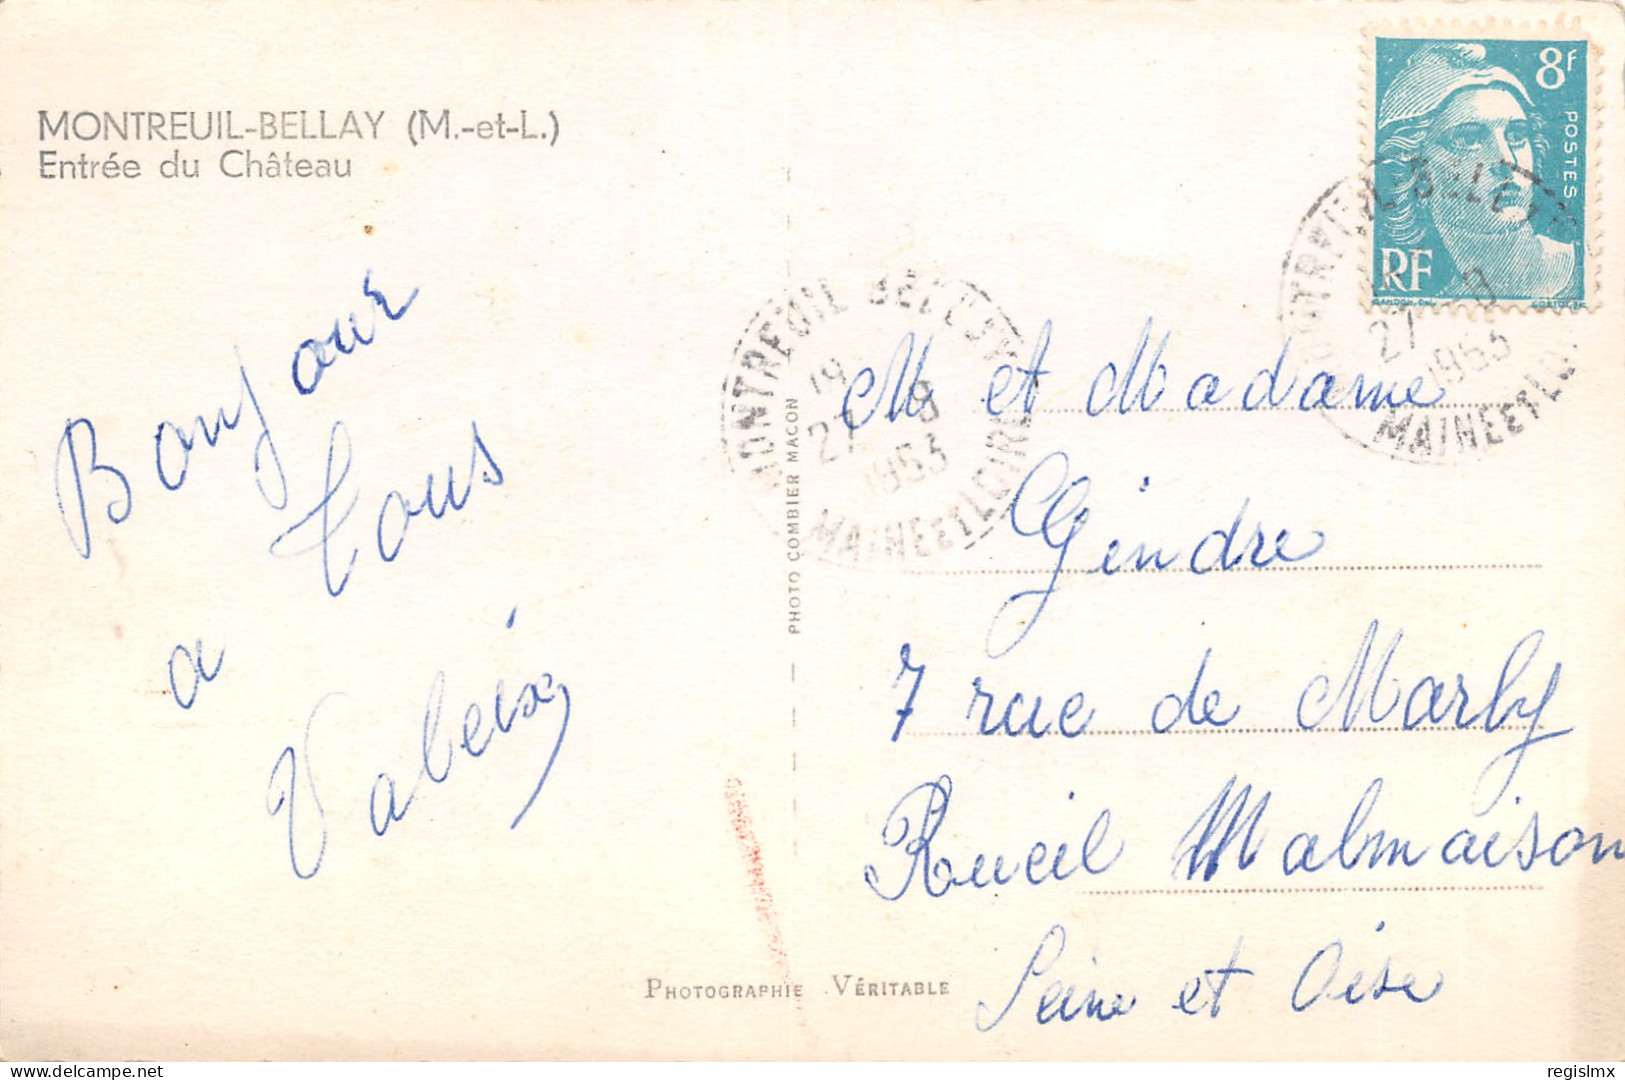 MONTREUIL-BELLAY (M.-et-L.)
Entrée du Château
Bonjour
a
tous
Valeix
PHOTO COMBIER MACON
PHOTOGRAPHIE VÉRITABLE
8F
POSTES
RF
MONTREUIL BELLAY
19
27 - 8
1953
MAINE ET LOIRE
MONTREUIL BELLAY
27
1953
MAINE ET LOIRE
M et Madame
Gendre
7 rue de Marly
Rueil Malmaison
Seine et Oise
regislmx
delcampe.net